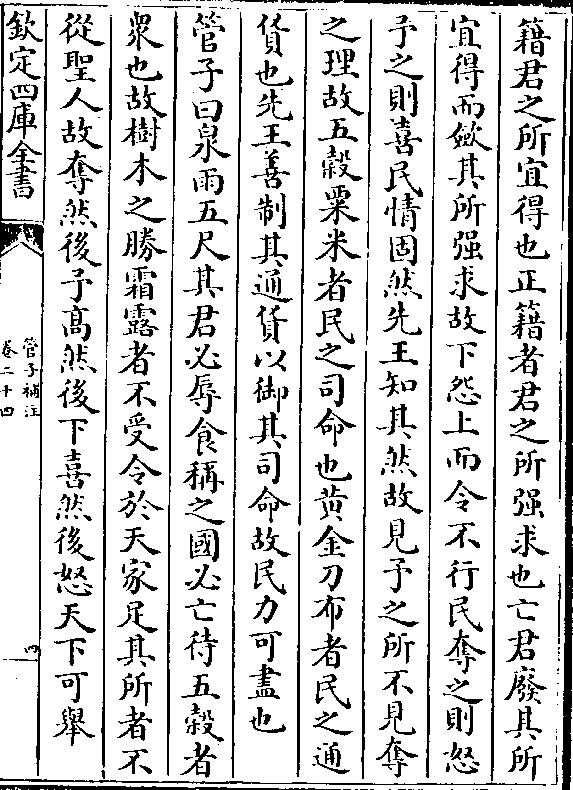 籍君之所宜得也正籍者君之所强求也亡君廢其所
宜得而斂其所强求故下怨上而令不行民奪之則怒
予之則喜民情固然先王知其然故見予之所不見奪
之理故五穀粟米者民之司命也黄金刀布者民之通
貨也先王善制其通貨以御其司命故民力可盡也
管子曰泉雨五尺其君必辱食稱之國必亡待五穀者
衆也故樹木之勝霜露者不受令於天家足其所者不
從聖人故奪然後予髙然後下喜然後怒天下可舉
欽定四庫全書
管子補注
卷二十四
四